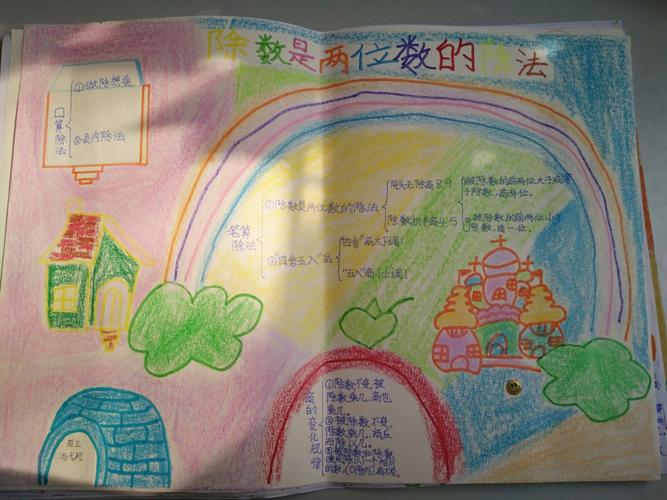 除数是两位数的除法
口算除法
①做除想乘
②表内除法
笔算
除法
①除数是两位数的除法
同头无除商8.9
除数折半商4.5
①被除数的前两位大于或等
于除数,商两位。
②被除数的前两位小
除数,商一位。
②"四舍五入"法
"四舍"商大下调!
"五入"商小上调!
商的变化规律
①除数不变,被
除数乘几,商也
乘几。
②被除数不变,
除数乘几,商反
而除以几。
③被除数和除数
的数,(0除外)商不变。